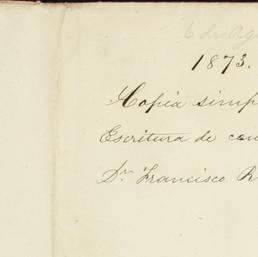 6 de Ag
1873.
Copia simp
Escritura de
Dn. Francisco R